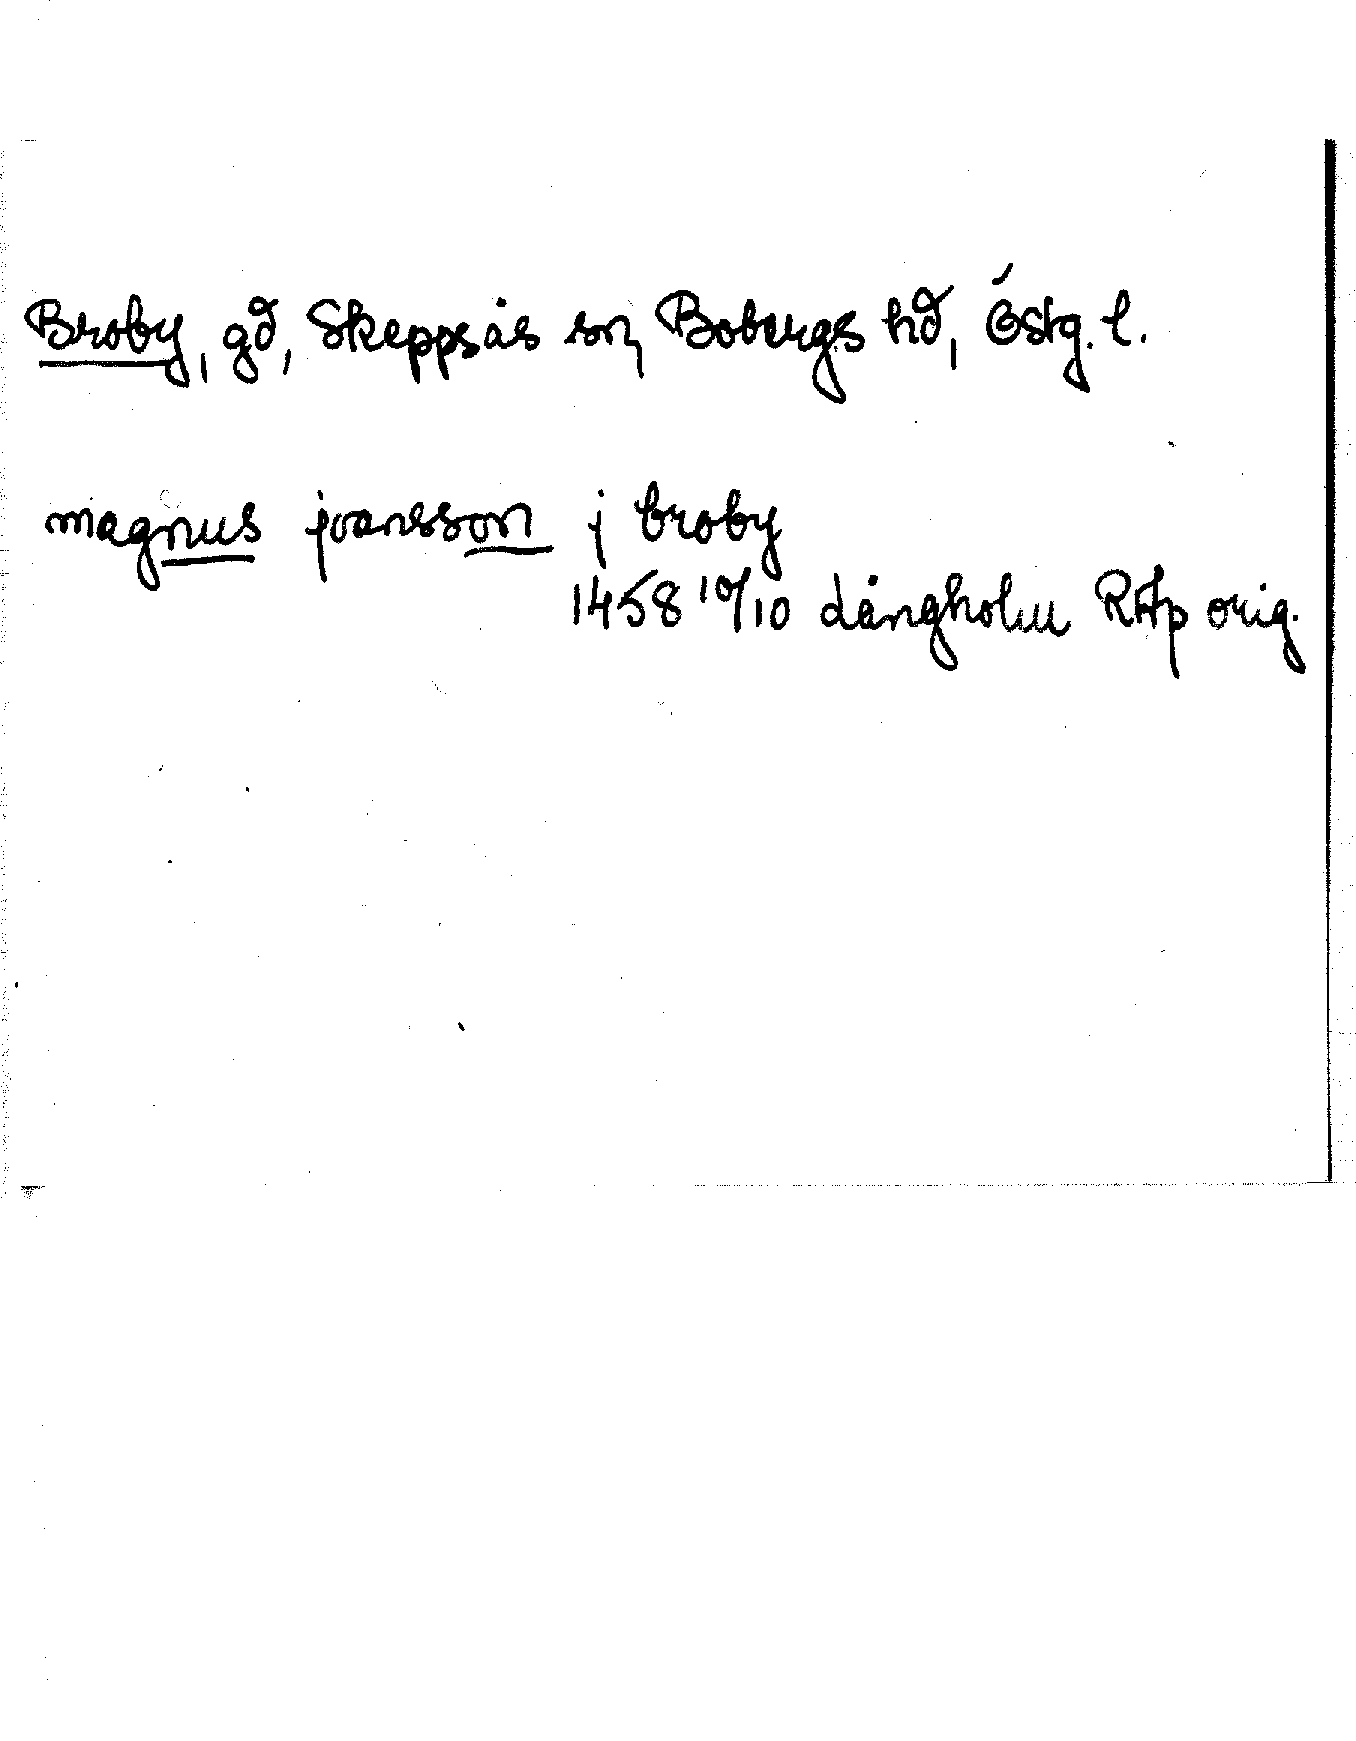 Broby, gd, Skeppsås sn, Bobergs hd, Östg. l.
magnus joansson j broby
1458 10/10 Långholm RAp orig.